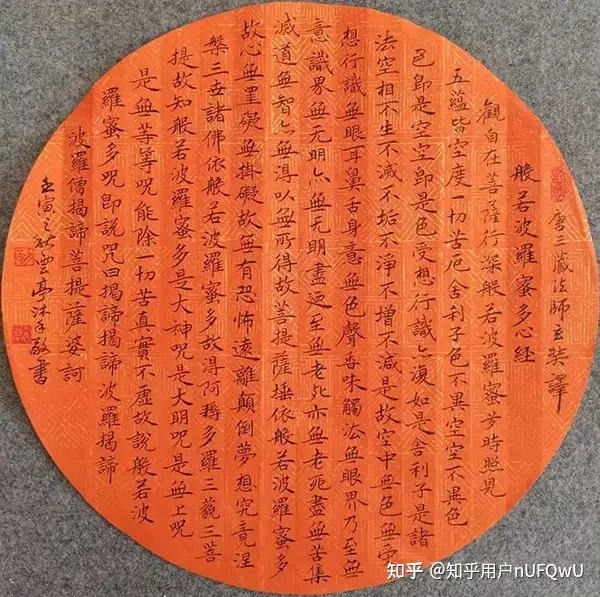 唐三藏法師玄奘譯
般若波羅蜜多心经
觀自在菩薩行深般若波羅蜜多時照見
五蘊皆空度一切苦厄舍利子色不異空空不異色
色即是空空即是色受想行識亦復如是舍利子是諸
法空相不生不滅不垢不淨不增不減是故空中無色無受
想行識無眼耳鼻舌身意無色聲香味觸法無眼界乃至無
意識界無无明亦無无明盡迺至無老死亦無老死盡無苦集
滅道無智亦無得以無所得故菩提薩埵依般若波羅蜜多
故心無罣礙無掛礙故無有恐怖遠離顛倒夢想究竟涅
槃三世諸佛依般若波羅蜜多故得阿耨多羅三藐三菩
提故知般若波羅蜜多是大神呪是大明呪是無上呪
是無等等呪能除一切苦真實不虛故說般若波
羅蜜多呪即說咒曰揭諦揭諦波羅揭諦
波羅僧揭諦菩提薩婆訶
壬寅之秋雲亭沐手敬書
知乎 @知乎用户nUFQwU